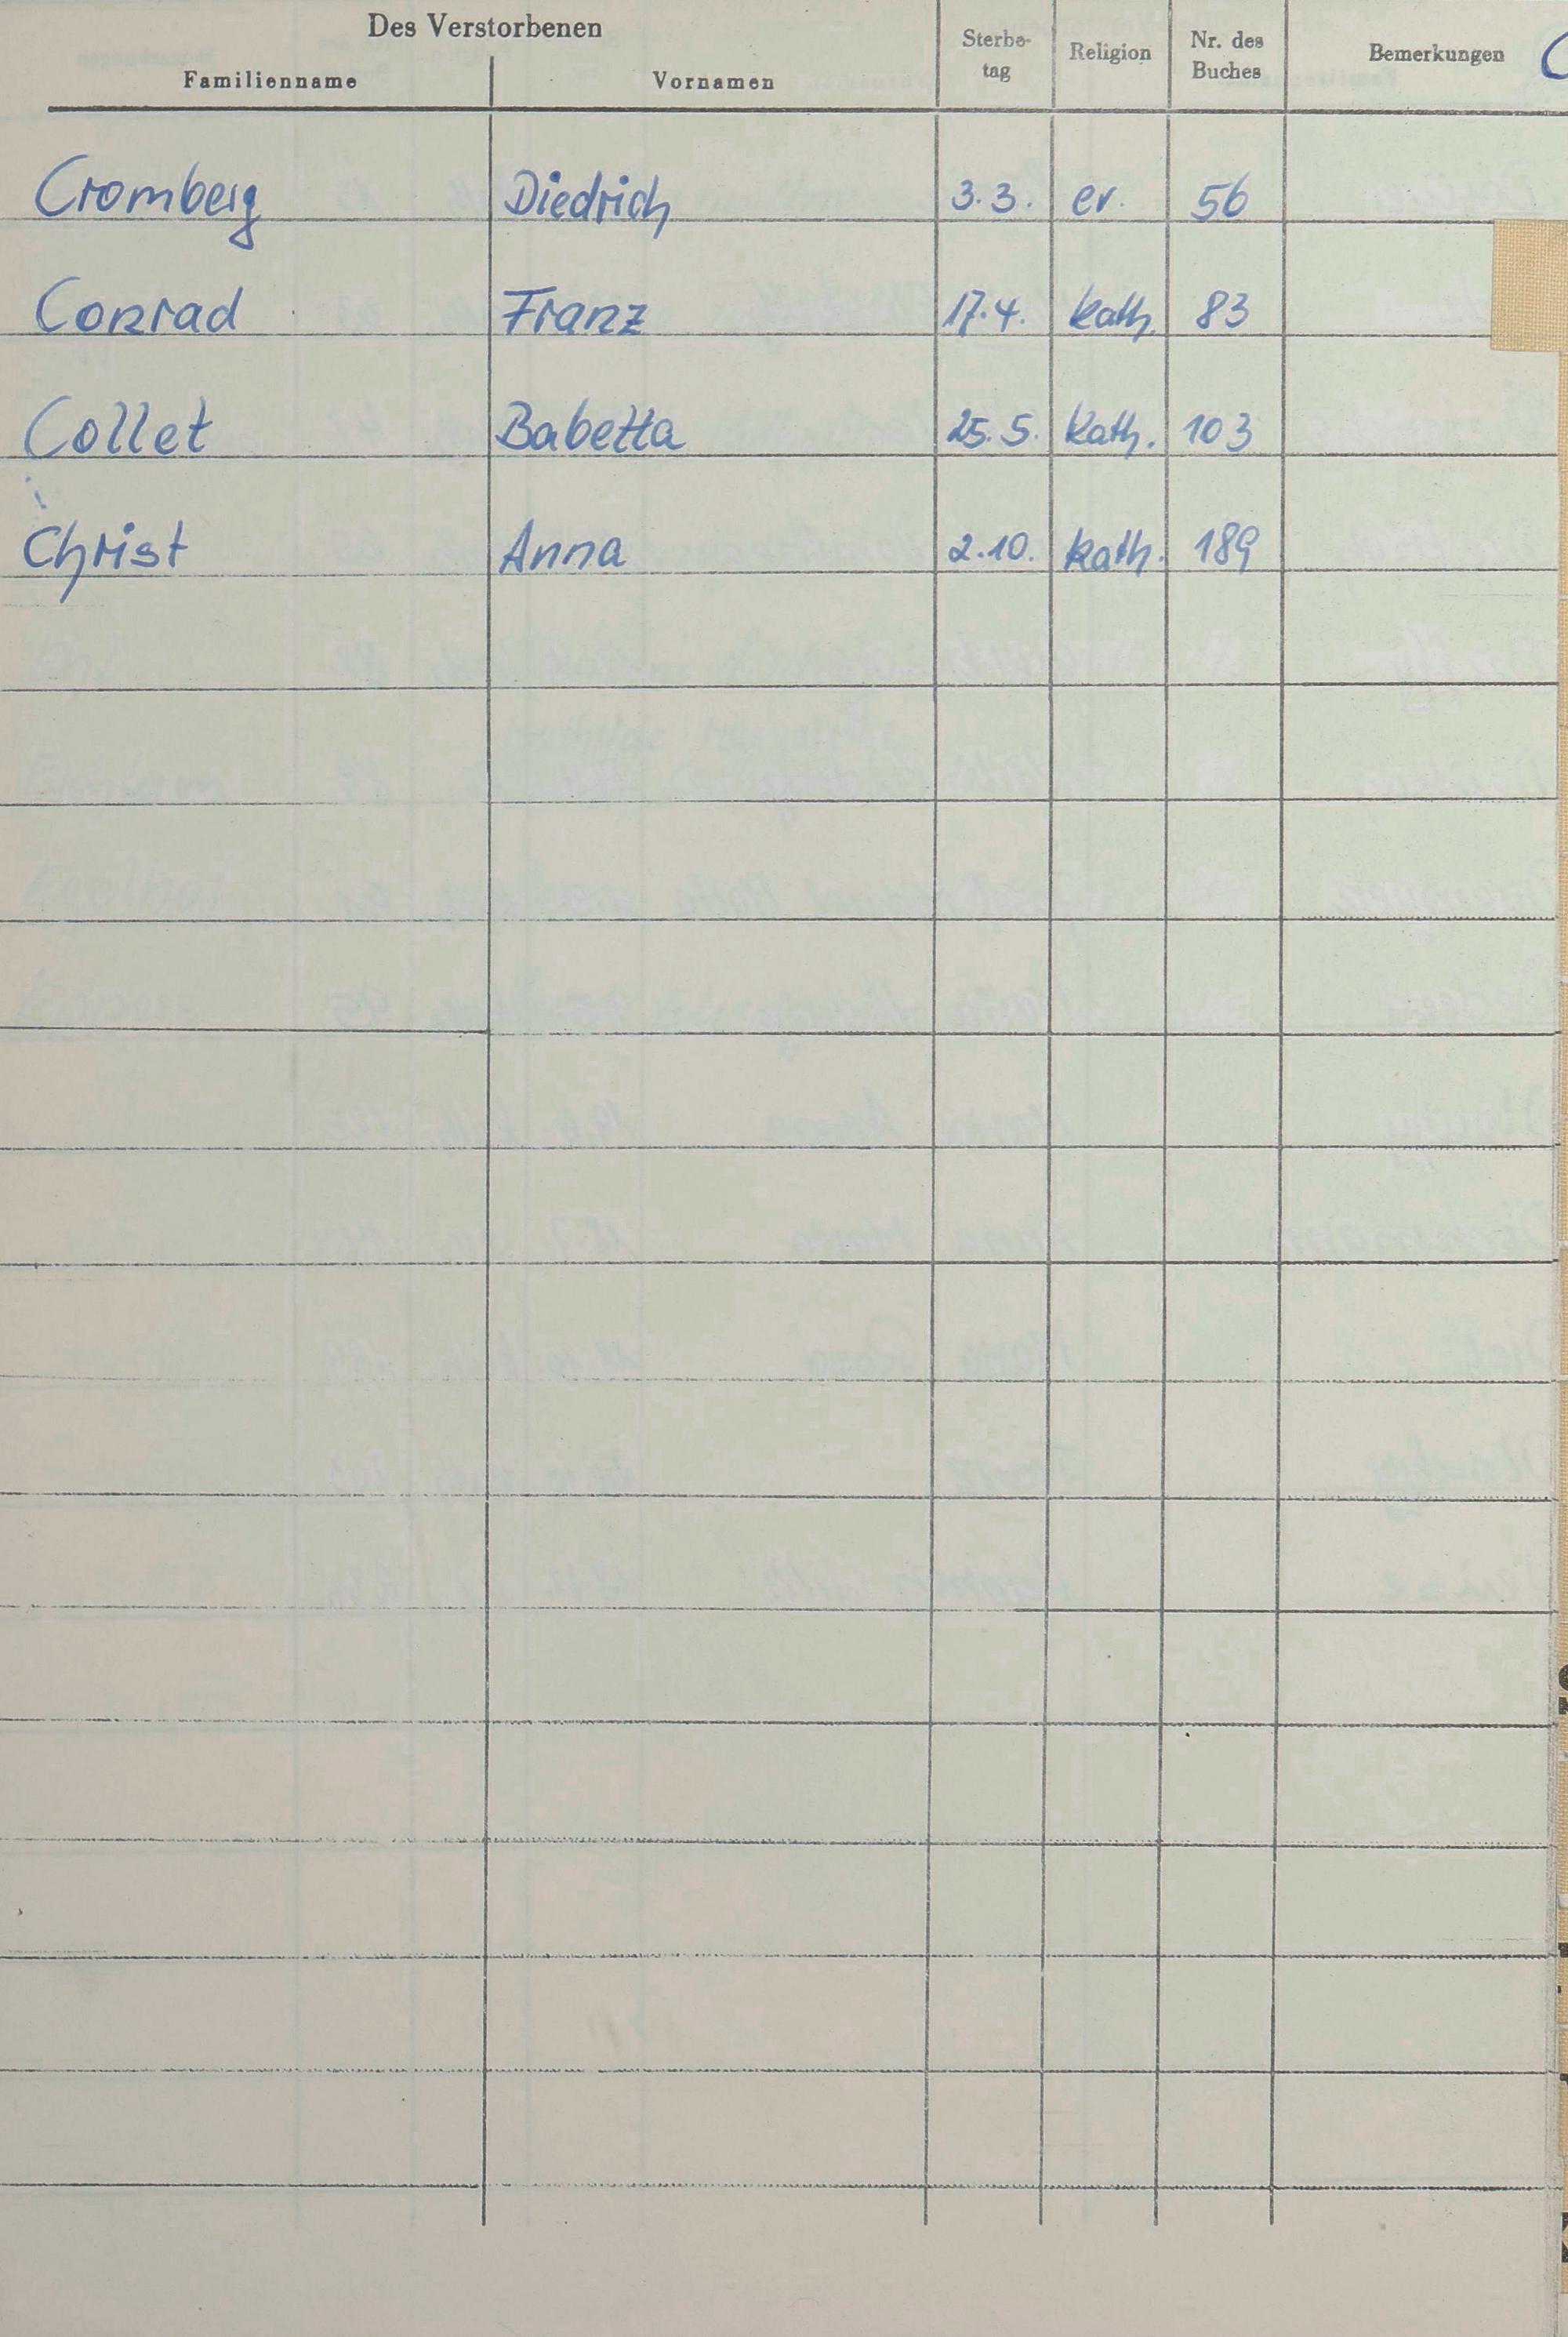 Des Verstorbenen
Familienname Vornamen Sterbe-tag Religion Nr. des Buches Bemerkungen C
Cromberg Diedrich 3.3. ev. 56
Conrad Franz 17.4. kath. 83
Collet Babetta 25.5. kath. 103
Christ Anna 2.10. kath. 189